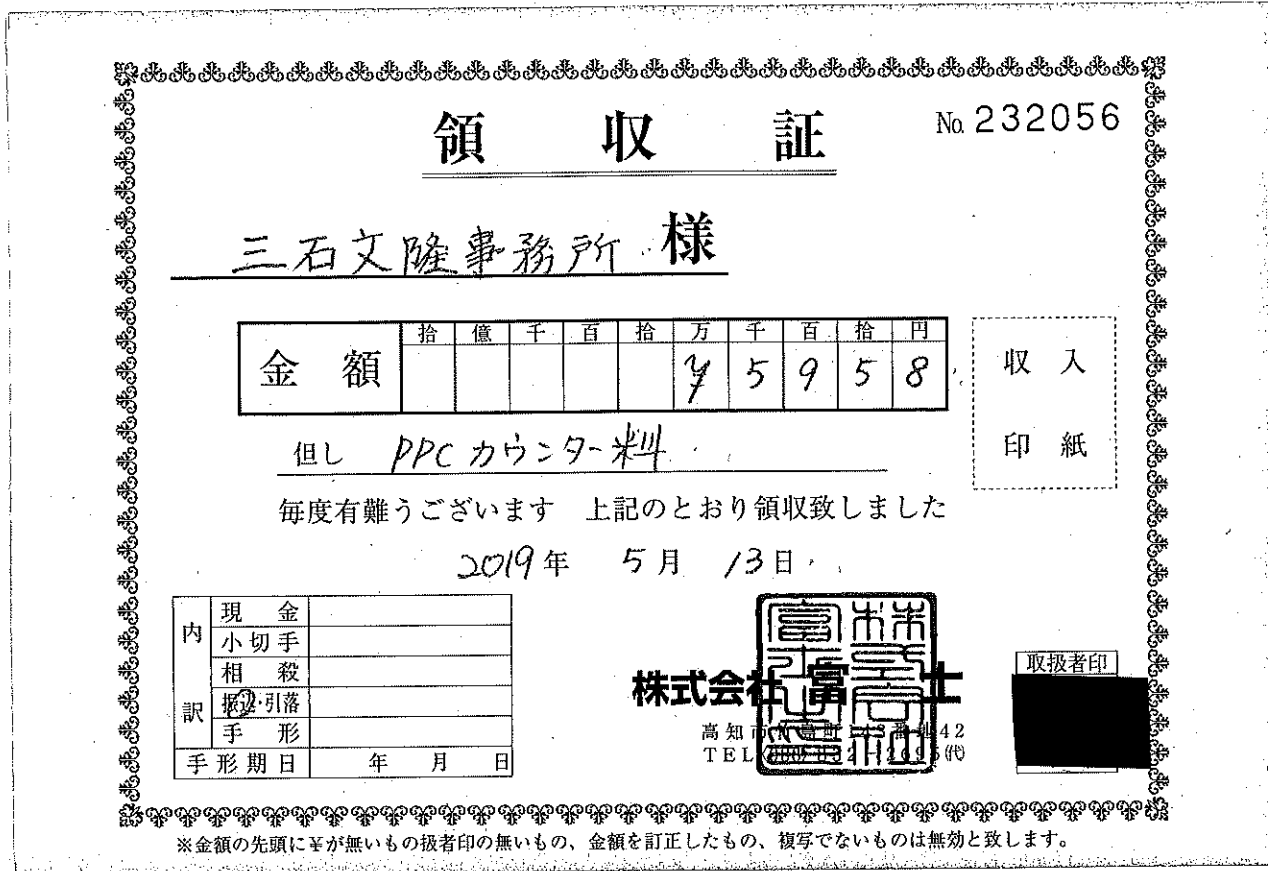 領収証
No. 232056
三石文隆事務所 様
拾 億 千 百 拾 万 千 百 拾 円
金額 ¥ 5 9 5 8
収入
印紙
但し PPCカウンター料
毎度有難うございます 上記のとおり領収致しました
2019年 5月 13日
内訳
現金
小切手
相殺
振込・引落
手形
手形期日 年 月 日
株式会社 富士
高知市
42
TEL
(代)
取扱者印
※金額の先頭に¥が無いもの扱者印の無いもの、金額を訂正したもの、複写でないものは無効と致します。